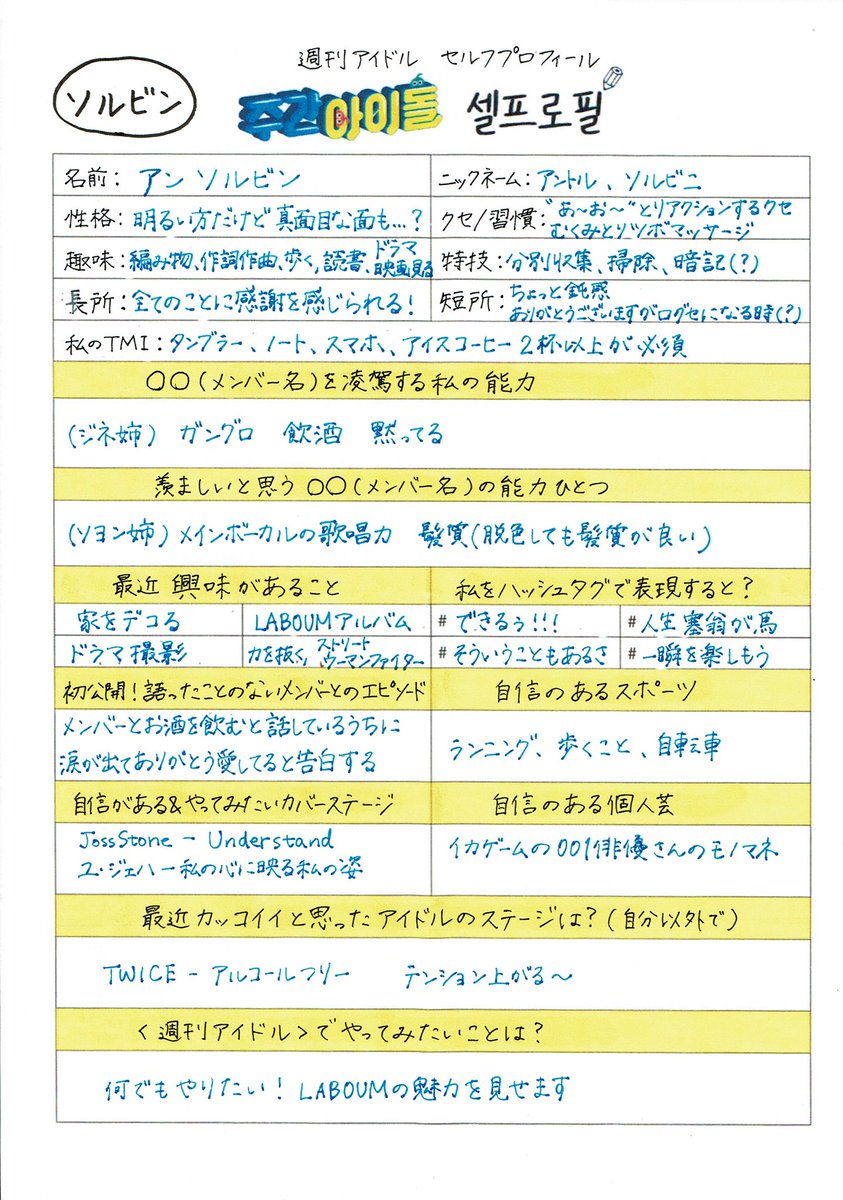 週刊アイドル セルフプロフィール
ソルビン
주간아이돌 셀프로필
名前: アン ソルビン
ニックネーム: アントル、ソルビニ
性格: 明るい方だけど真面目な面も…?
クセ/習慣: "あ〜お〜"とリアクションするクセ
むくみとりツボマッサージ
趣味: 編み物、作詞作曲、歩く、読書、ドラマ
映画見る
特技: 分別収集、掃除、暗記(?)
長所: 全てのことに感謝を感じられる!
短所: ちょっと鈍感
ありがとうございますが口グセになる時(?)
私のTMI: タンブラー、ノート、スマホ、アイスコーヒー2杯以上が必須
〇〇(メンバー名)を凌駕する私の能力
(ジネ姉) ガングロ 飲酒 黙ってる
羨ましいと思う〇〇(メンバー名)の能力ひとつ
(ソヨン姉) メインボーカルの歌唱力 髪質(脱色しても髪質が良い)
最近興味があること
家をデコる
LABOUMアルバム
ドラマ撮影
力を抜く, ストリート
ウーマンファイター
私をハッシュタグで表現すると?
# できるぅ!!!
# 人生塞翁が馬
# そういうこともあるさ
# 一瞬を楽しもう
初公開!語ったことのないメンバーとのエピソード
メンバーとお酒を飲むと話しているうちに
涙が出てありがとう愛してると告白する
自信のあるスポーツ
ランニング、歩くこと、自転車
自信がある&やってみたいカバーステージ
JossStone - Understand
ユ・ジェハ - 私の心に映る私の姿
自信のある個人芸
イカゲームの001俳優さんのモノマネ
最近カッコイイと思ったアイドルのステージは?(自分以外で)
TWICE - アルコールフリー テンション上がる〜
<週刊アイドル>でやってみたいことは?
何でもやりたい! LABOUMの魅力を見せます